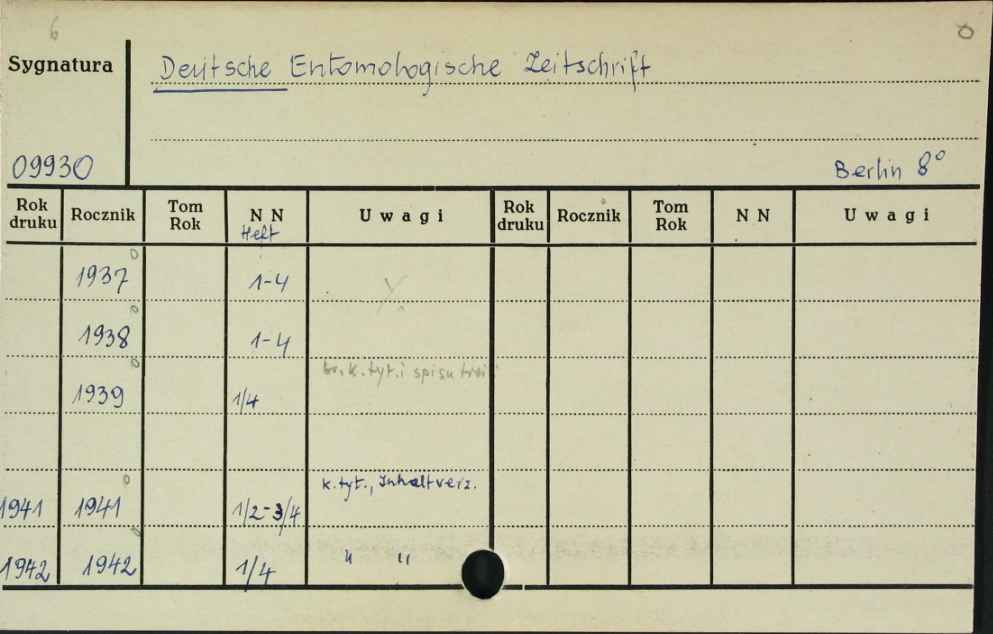 6
Sygnatura
Deutsche Entomologische Zeitschrift
09930
Berlin 8°
Rok druku Rocznik Tom Rok N N Heft U w a g i Rok druku Rocznik Tom Rok N N U w a g i
1937 1-4
1938 1-4
k. tyt. i spisu
1939 1/4
k. tyt., Inhaltverz.
1941 1941 1/2-3/4
1942 1942 1/4 " "